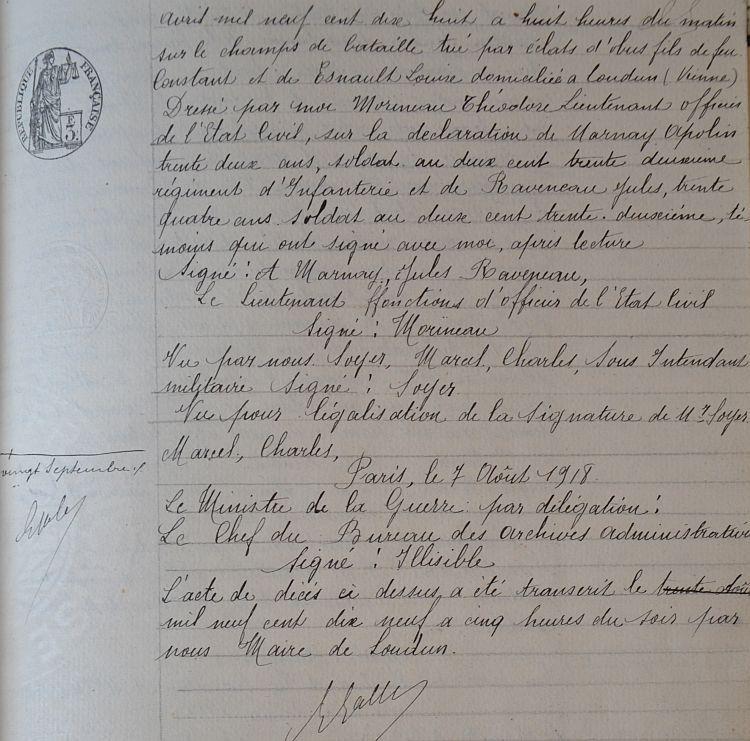 avril mil neuf cent dix huit à huit heures du matin
sur le champs de bataille tué par éclats d'obus fils de feu
Constant et de Esnault Louise domiciliée à Loudun (Vienne)
Dressé par moi Morineau Théodore Lieutenant officier
de l'Etat Civil, sur la declaration de Marnay Apolin
trente deux ans, soldat au deux cent trente deuxième
régiment d'Infanterie et de Raveneau Jules, trente
quatre ans soldat au deux cent trente deuxième, té-
moins qui ont signé avec moi, après lecture
Signé : A Marnay, Jules Raveneau,
Le Lieutenant ffonctions d'officier de l'Etat Civil
Signé : Morineau
Vu par nous Soyer, Marcel, Charles, Sous Intendant
militaire Signé : Soyer
Vu pour légalisation de la signature de Mr Soyer
Marcel, Charles,
Paris, le 7 Août 1918.
Le Ministre de la Guerre par délégation :
Le Chef du Bureau des Archives administratives
Signé : Illisible
L'acte de décès ci dessus a été transcrit le trente Août
mil neuf cent dix neuf à cinq heures du soir par
nous Maire de Loudun.
vingt Septembre
RÉPUBLIQUE FRANÇAISE